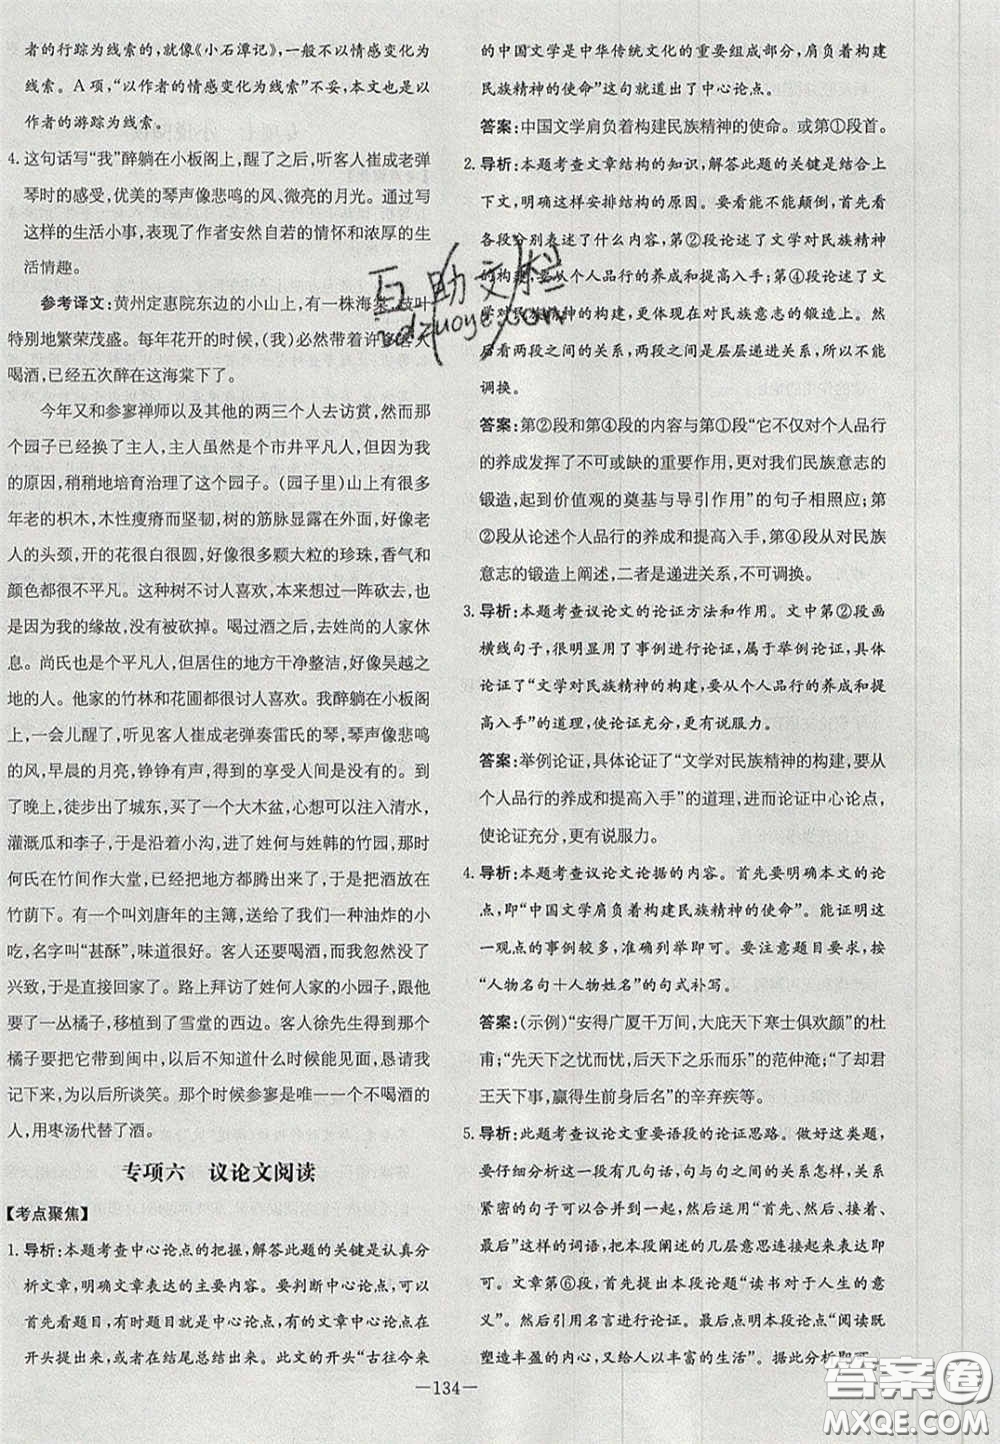 者的行踪为线索的,就像《小石潭记》,一般不以情感变化为
线索。A项,“以作者的情感变化为线索”不妥,本文也是以
作者的游踪为线索。
4. 这句话写“我”醉躺在小板阁上,醒了之后,听客人崔成老弹
琴时的感受,优美的琴声像悲鸣的风、微亮的月光。通过写
这样的生活小事,表现了作者安然自若的情怀和浓厚的生
活情趣。
参考译文:黄州定惠院东边的小山上,有一株海棠,枝叶
特别地繁荣茂盛。每年花开的时候,(我)必然带着许多客人
喝酒,已经五次醉在这海棠下了。
今年又和参寥禅师以及其他的两三个人去访赏,然而那
个园子已经换了主人,主人虽然是个市井平凡人,但因为我
的原因,稍稍地培育治理了这个园子。(园子里)山上有很多
年老的枳木,木性瘦瘠而坚韧,树的筋脉显露在外面,好像老
人的头颈,开的花很白很圆,好像很多颗大粒的珍珠,香气和
颜色都很不平凡。这种树不讨人喜欢,本来也要渐渐砍去,
因为我的缘故,没有被砍掉。喝过酒之后,去姓尚的人家休
息。尚氏也是个平凡人,但居住的地方干净整洁,好像吴越之
地的人。他家的竹林和花圃都很讨人喜欢。我醉躺在小板阁
上,一会儿醒了,听见客人崔成老弹奏雷氏的琴。琴声像悲鸣
的风,早晨的月亮,铮铮有声,得到的享受人间是没有的。到
了晚上,徒步出了城东,买了一个大木盆,心想可以注入清水,
灌溉瓜和李子,于是沿着小沟,进了姓何与姓韩的竹园。那时
何氏在竹间作大堂,已经把地方都腾出来了,于是把酒放在
竹荫下。有一个叫刘唐年的主簿,送给了我一种油炸的小
吃,名字叫“甚酥”,味道很好。客人还要喝酒,而我忽然没有
兴致了,于是直接回家了。路上拜访了姓何人家的小园子,
要了一丛橘子,移植到了雪堂的西边。客人徐先生得到那个
橘子要把它带到闽中,以后不知道什么时候能见面,恳请我
记下来,为以后所谈笑。那个时候参寥是唯一一个不喝酒的
人,用枣汤代替了酒。
专项六 议论文阅读
【考点聚焦】
1. 导析:本题考查中心论点的把握,解答此题的关键是认真分
析文章,明确文章表达的主要内容。要判断中心论点,可以
首先看题目,有时题目就是中心论点,有的文章中心论点在
开头提出来,或者在结尾总结出来。此文的开头“古往今来
的中国文学是中华传统文化的重要组成部分,肩负着构建
民族精神的使命”这句就道出了中心论点。
答案:中国文学肩负着构建民族精神的使命。或第①段首。
2. 导析:本题考查文章结构的知识,解答此题的关键是结合上
下文,明确这样安排结构的原因。要看能不能颠倒,首先看
各段分别表述了什么内容,第②段论述了文学对民族精神
的构建,要从个人品行的养成和提高入手;第④段论述了文
学对民族精神的构建,更体现在对民族意志的锻造上。然
后看两段之间的关系,两段之间是层层递进关系,所以不能
调换。
答案:第②段和第④段的内容与第①段“它不仅对个人品行
的养成发挥了不可或缺的重要作用,更对我们民族意志的
锻造,起到价值观的奠基与导引作用”的句子相照应;第
②段从论述个人品行的养成和提高入手,第④段从对民族
意志的锻造上阐述,二者是递进关系,不可调换。
3. 导析:本题考查议论文的论证方法和作用。文中第②段画
横线句子,很明显用了事例进行论证,属于举例论证,具体
论证了“文学对民族精神的构建,要从个人品行的养成和提
高入手”的道理,使论证充分,更有说服力。
答案:举例论证,具体论证了“文学对民族精神的构建,要从
个人品行的养成和提高入手”的道理,进而论证中心论点,
使论证充分,更有说服力。
4. 导析:本题考查议论文论据的内容。首先要明确本文的论
点,即“中国文学肩负着构建民族精神的使命”。能证明这
一观点的事例较多,准确列举即可。要注意题目要求,按
“人物名句+人物姓名”的句式补写。
答案:(示例)“安得广厦千万间,大庇天下寒士俱欢颜”的杜
甫;“先天下之忧而忧,后天下之乐而乐”的范仲淹;“了却君
王天下事,赢得生前身后名”的辛弃疾等。
5. 导析:此题考查议论文重要语段的论证思路。做好这类题,
要仔细分析这一段有几句话,每句话分别说了什么,关系
紧密的句子可以合并到一起,然后,用“首先、然后、接着、
最后”这样的词语,把本段阐述的几层意思连缀起来即
可。文章第⑥段,首先提出本段论题“读书对于人生的意
义”。然后引用名言进行论证。最后点明本段论点“阅读既
塑造丰盈的内心,又给人以最丰富的生活”。据此分析即可。
—134—
互助文档
hdzuoye.com
答案圈
MXQE.COM